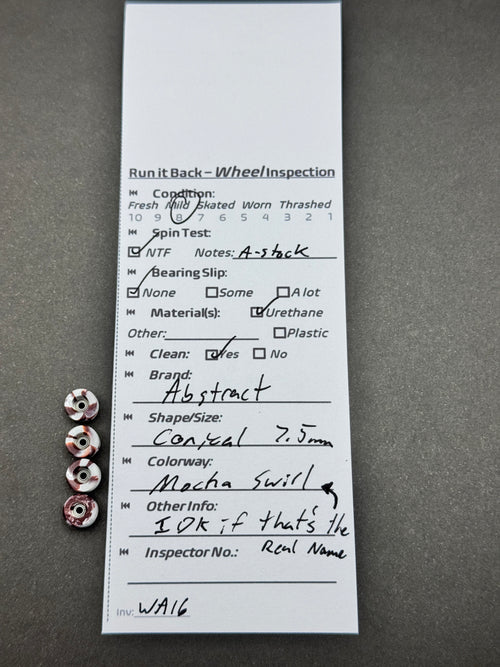 Run it Back – Wheel Inspection
Condition:
Fresh Mild Skated Worn Thrashed
10 9 8 7 6 5 4 3 2 1
Spin Test:
NTF Notes: A-stock
Bearing Slip:
None Some A lot
Material(s): Urethane
Other: Plastic
Clean: Yes No
Brand:
Abstract
Shape/Size:
Conical 7.5mm
Colorway:
Mocha Swirl
Other Info:
I DK if that's the
Real Name
Inspector No.:
Inv: WA16